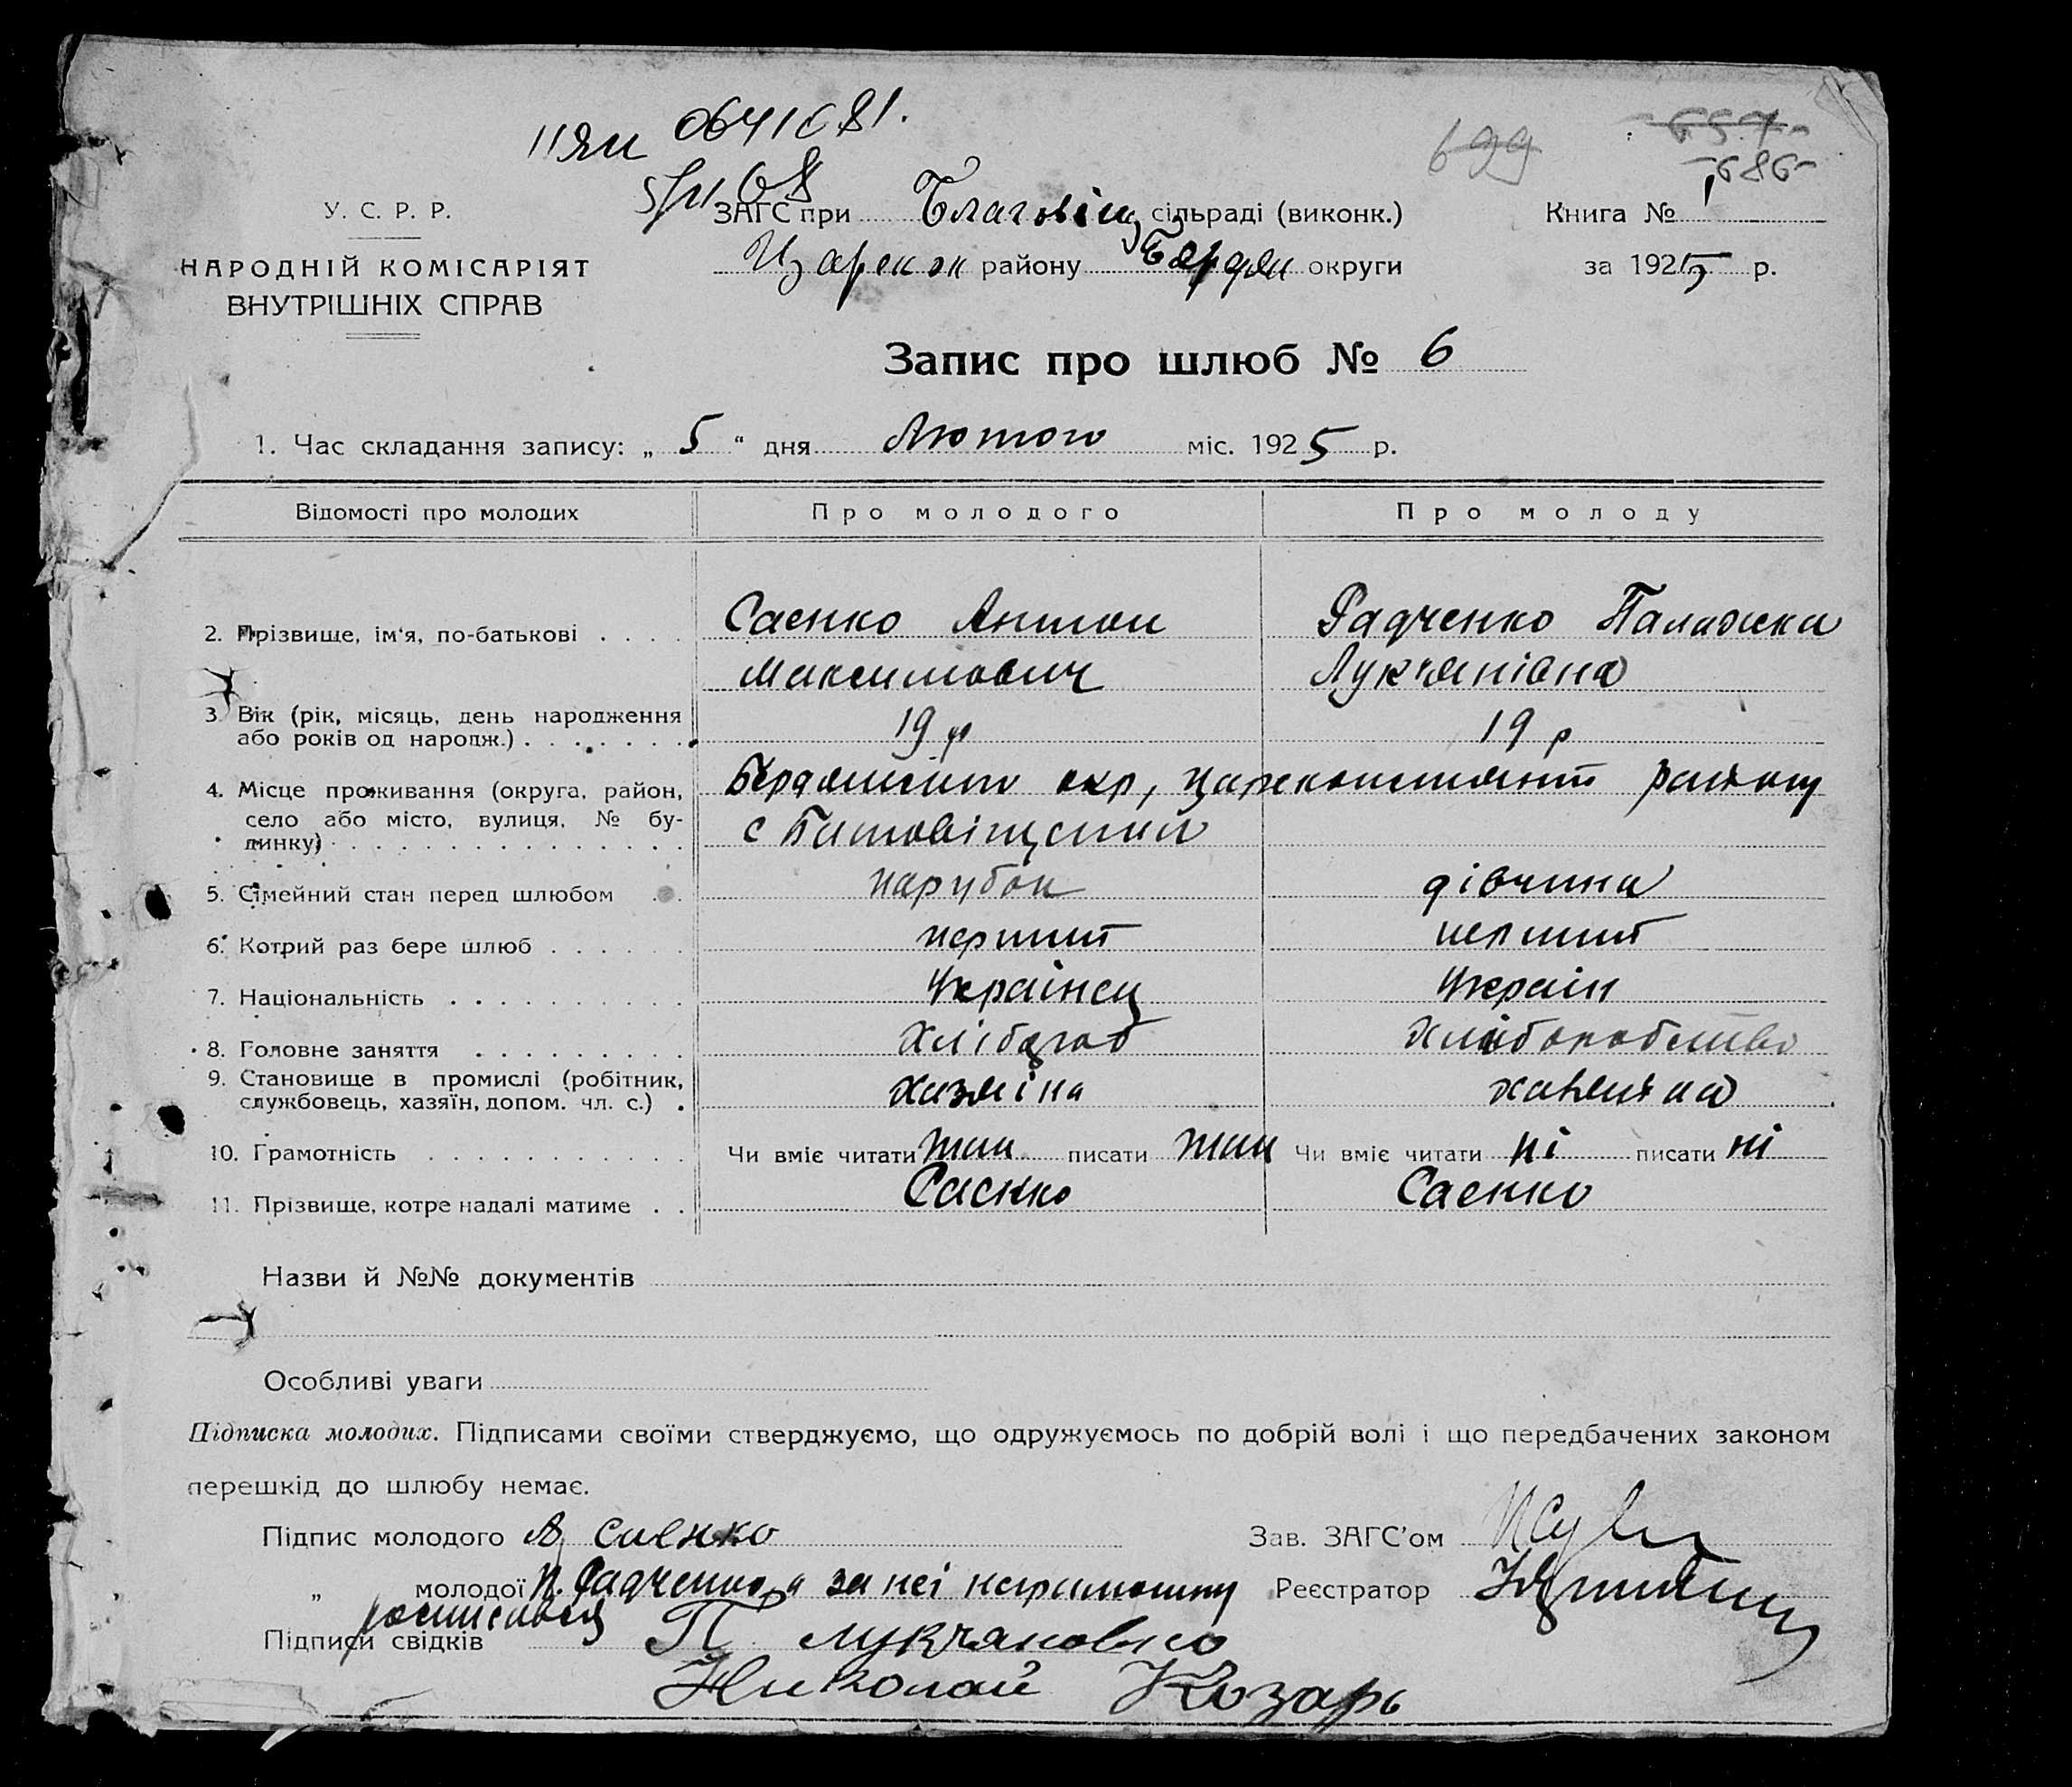 11ЯИ 0641681.
699 657
-686-
У. С. Р. Р.
ЗАГС при Благовіщ сільраді (виконк.)
Книга № 1
НАРОДНІЙ КОМІСАРІЯТ
ВНУТРІШНІХ СПРАВ
Царекон району Бердян округи
за 1925 р.
Запис про шлюб № 6
1. Час складання запису: „ 5 “ дня Лютого міс. 1925 р.
Відомості про молодих Про молодого Про молоду
2. Прізвище, ім'я, по-батькові . . . . Саенко Антон Радченко Палажка
Максимович Лукянівна
3. Вік (рік, місяць, день народження
або років од народж.) . . . . . . . 19 р 19 р
4. Місце проживання (округа, район, Бердянского окр, Цареконстянт району
село або місто, вулиця, № бу-
динку) . . . . . . . . . . . . . . с
5. Сімейний стан перед шлюбом . . парубок дівчина
6. Котрий раз бере шлюб . . . . . . перший перший
7. Національність . . . . . . . . . . Українец Україн
8. Головне заняття . . . . . . . . . Хлібороб Хлиборобство
9. Становище в промислі (робітник,
службовець, хазяїн, допом. чл. с.) . хазяіна
10. Грамотність . . . . . . . . . . . Чи вміє читати так писати так Чи вміє читати ні писати ні
11. Прізвище, котре надалі матиме . . Саенко Саенко
Назви й №№ документів
Особливі уваги
Підписка молодих. Підписами своїми стверджуємо, що одружуємось по добрій волі і що передбачених законом
перешкід до шлюбу немає.
Підпис молодого А Саенко Зав. ЗАГС'ом
„ молодої П. Радченко, а за неі неграмотну Реєстратор
росписався
Підписи свідків П Лукяновко
Николай Козарь